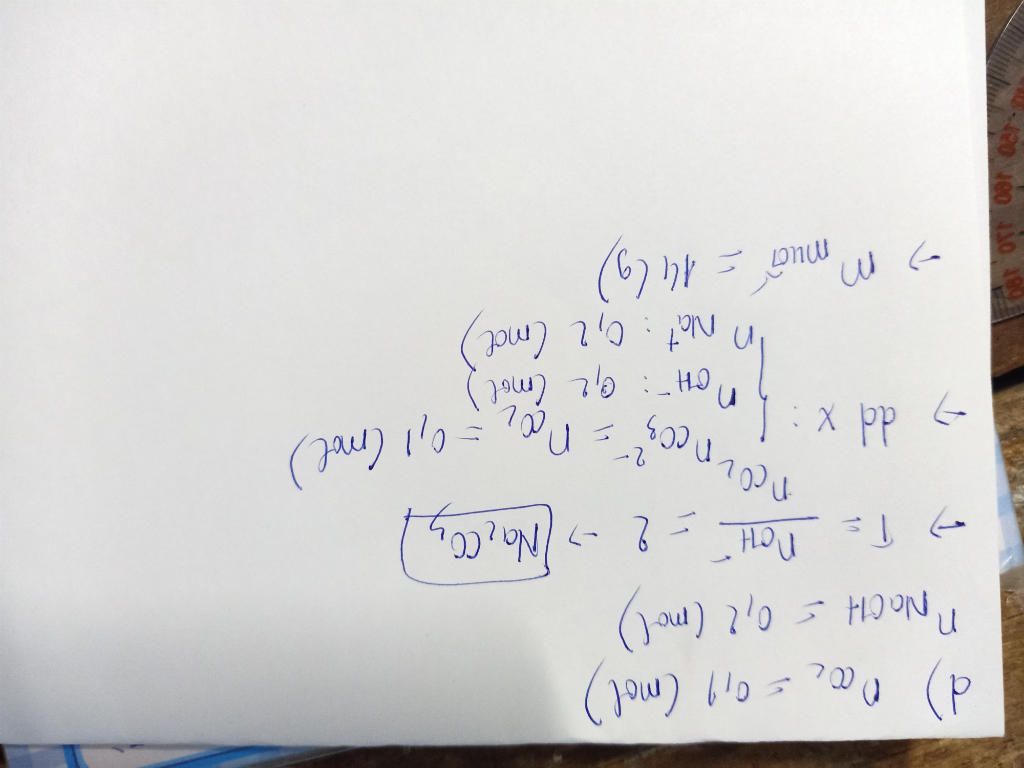 d) nCO₂ = 0,1 (mol)
nNaOH = 0,2 (mol)
→ T = nOH⁻ / nCO₂ = 2 → Na₂CO₃
→ dd X : { nCO₃²⁻ = nCO₂ = 0,1 (mol)
nOH⁻ : 0,2 (mol)
nNa⁺ : 0,2 (mol)
→ m muối = 14 (g)
150
160
170
180